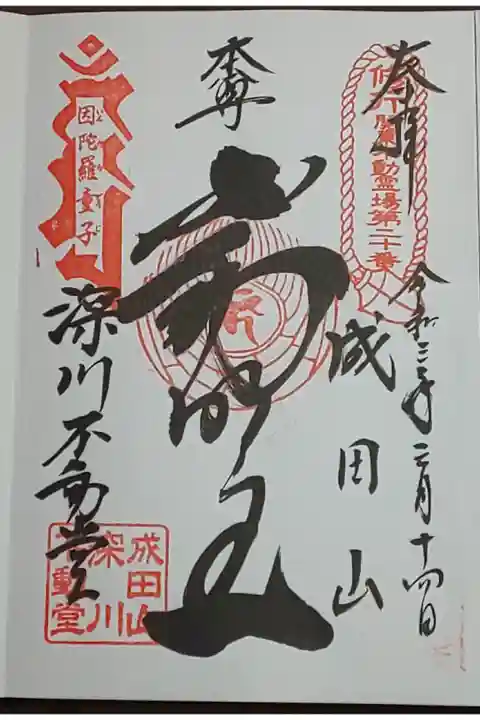 奉拝
関東不動霊場第二十番
令和三年二月十四日
成田山
本尊
不動明王
因陀羅童子
深川不動堂
成田山
深川
不動堂